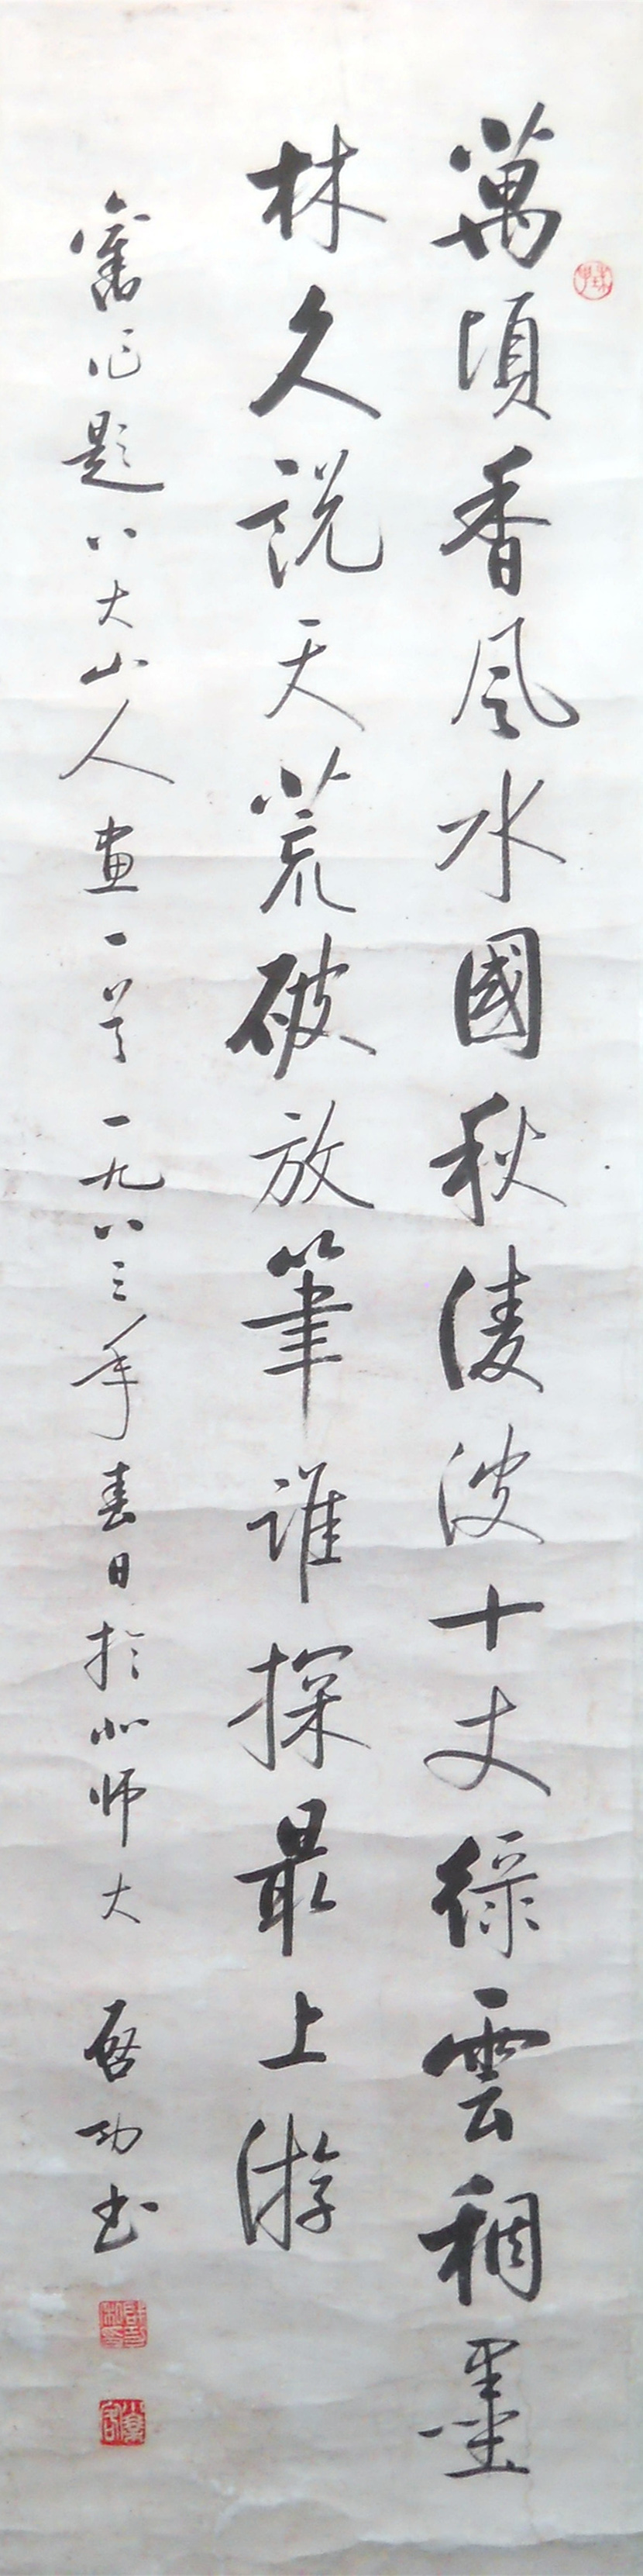 萬頃香風水國秋淩波十丈綠雲稠墨
林久説天荒破放筆誰探最上游
舊作題八大山人畫一首一九八三年春日於北师大 啓功书